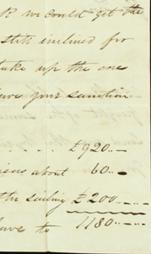 we could get the
still inclined for
take up the one
your sanction
£920..—
about 60..—
the sailing £200..—..—
to 1180..—..—